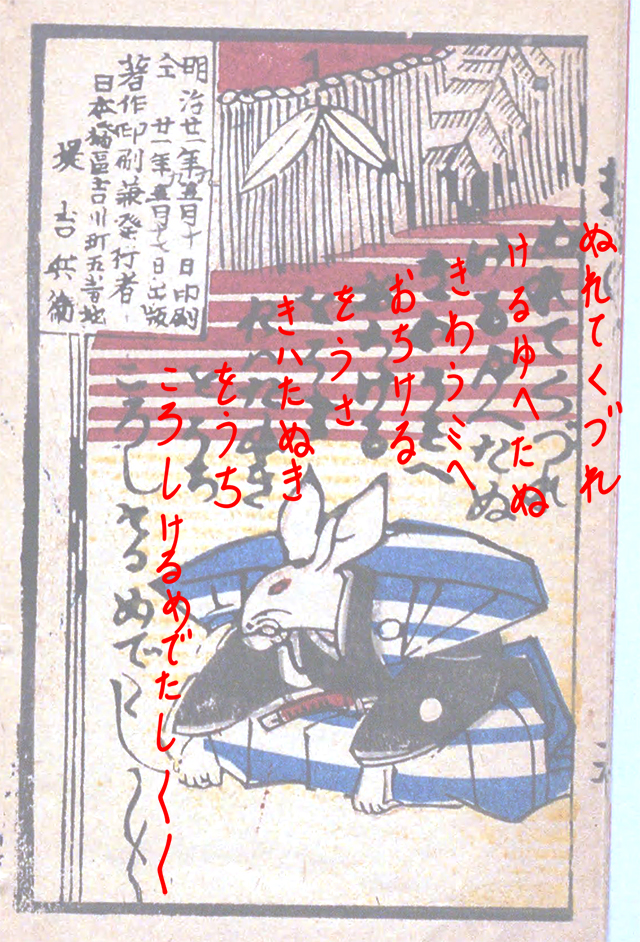 ぬれてくづれ
けるゆへたぬ
きわうミへ
おちける
をうさ
きハたぬき
をうち
ころしけるめでたし〱〱
明治廿一年五月十日印刷
仝 廿一年五月十七日出版
著作印刷兼發行者
日本橋區吉川町五番地
堤吉兵衛